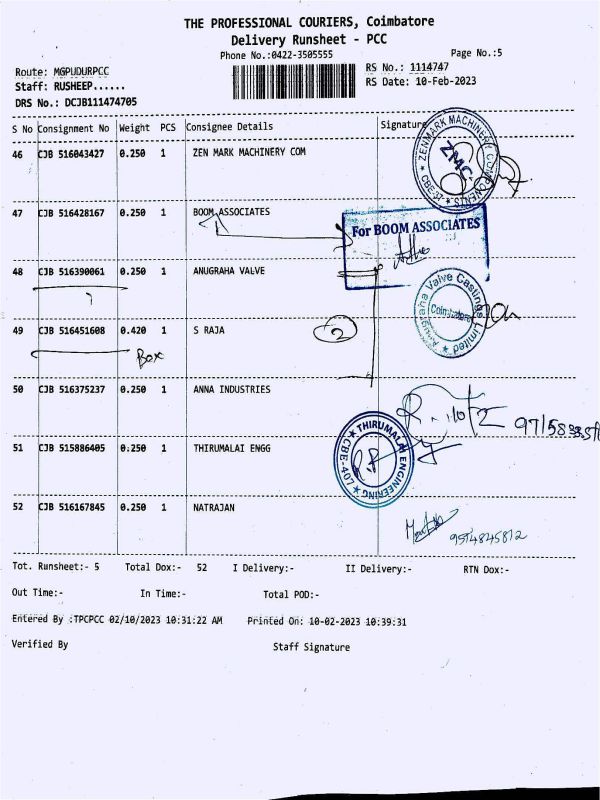 THE PROFESSIONAL COURIERS, Coimbatore
Delivery Runsheet - PCC
Phone No.:0422-3505555
Page No.:5
Route: MGPUDURPCC
RS No.: 1114747
Staff: RUSHEEP......
RS Date: 10-Feb-2023
DRS No.: DCJB111474705
S No Consignment No Weight PCS Consignee Details Signature
46 CJB 516043427 0.250 1 ZEN MARK MACHINERY COM
ZENMARK MACHINERY COMPONENTS
ZMC
CBE-37
47 CJB 516428167 0.250 1 BOOM ASSOCIATES
For BOOM ASSOCIATES
48 CJB 516390061 0.250 1 ANUGRAHA VALVE
Anugraha Valve Castings Limited
Coimbatore
49 CJB 516451608 0.420 1 S RAJA
2
Box
50 CJB 516375237 0.250 1 ANNA INDUSTRIES
51 CJB 515886405 0.250 1 THIRUMALAI ENGG
THIRUMALAI ENGINEERING
CBE-407
52 CJB 516167845 0.250 1 NATRAJAN
Tot. Runsheet:- 5 Total Dox:- 52 I Delivery:- II Delivery:- RTN Dox:-
Out Time:- In Time:- Total POD:-
Entered By :TPCPCC 02/10/2023 10:31:22 AM Printed On: 10-02-2023 10:39:31
Verified By Staff Signature